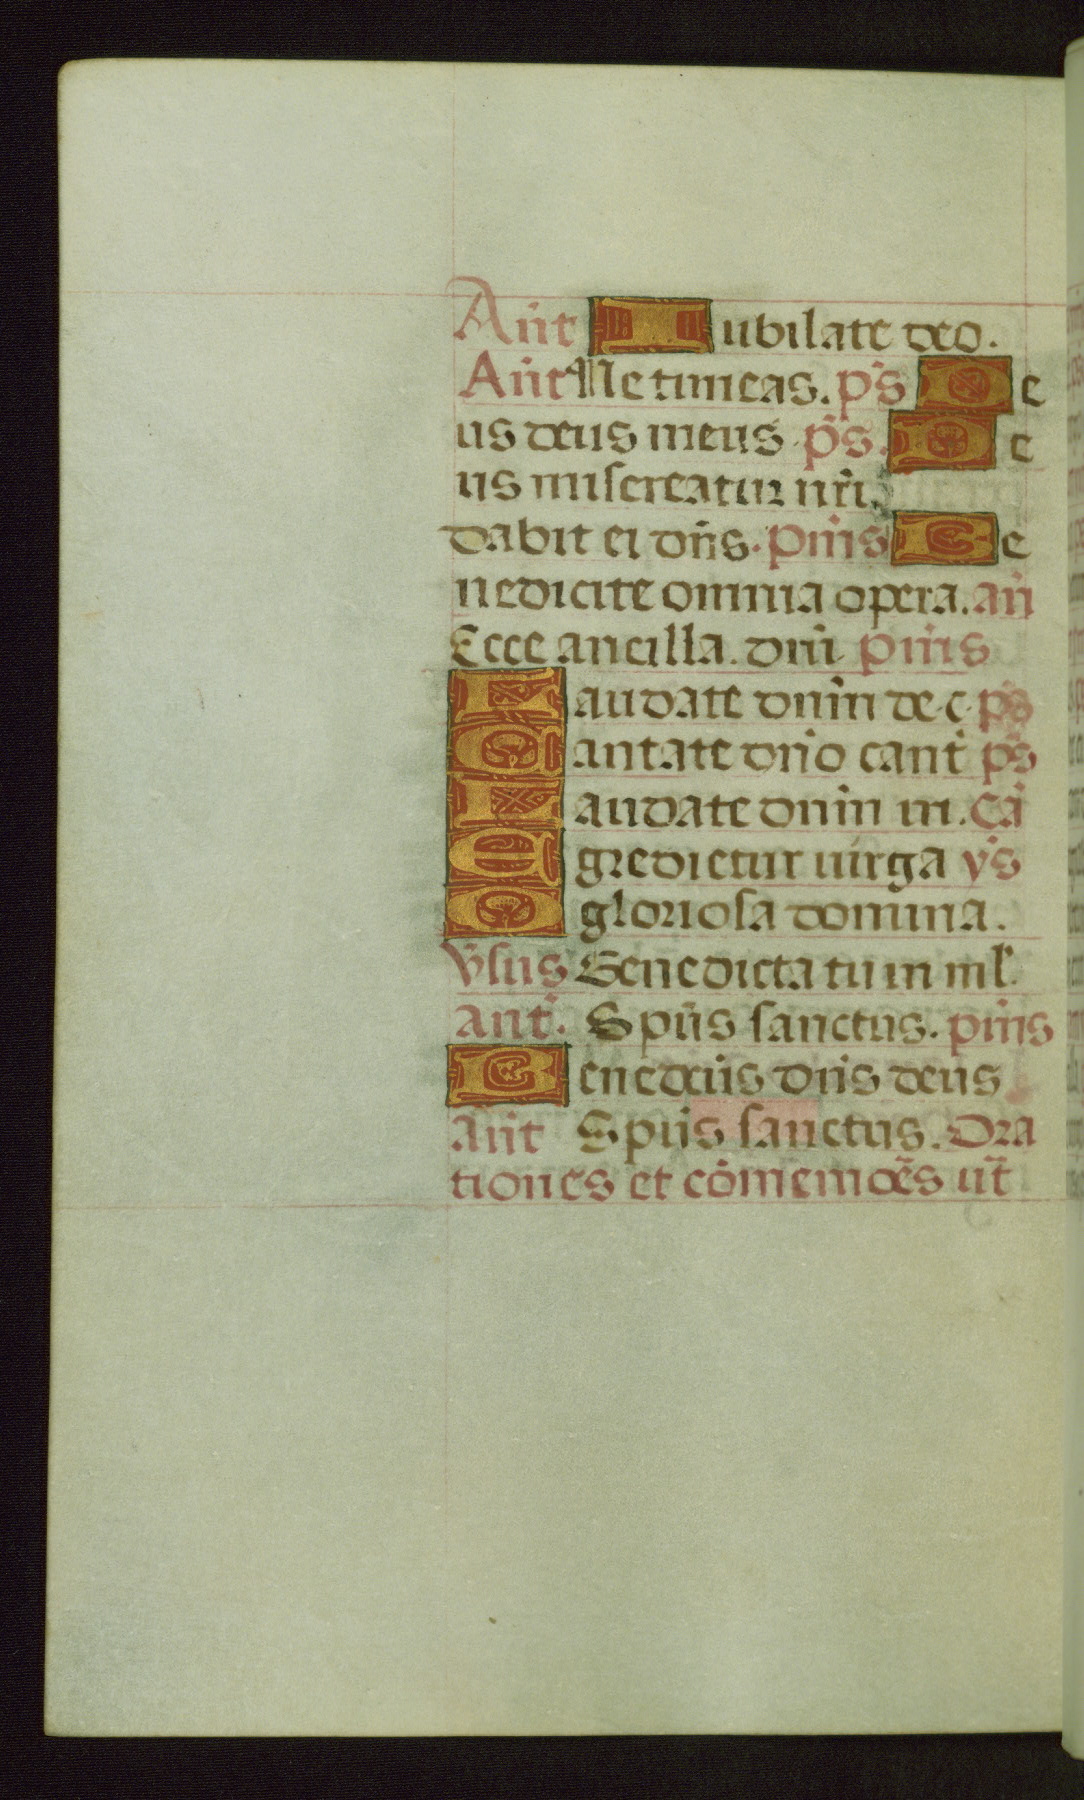 An̄t Iubilate deo.
An̄t Ne timeas. p̄s De
us deus meus. p̄s. De
us misereatur nr̄i.
dabit ei dn̄s. pm̄s Be
nedicite omnia opera. an̄
Ecce ancilla. dn̄i pm̄s
Laudate dn̄m de. c. p̄s
Cantate dn̄o cant̄ p̄s
Laudate dn̄m in. Ca̅
Egredietur uirga v̄s
O gloriosa domina.
v̄sus Benedicta tu in ml̄.
ant̄. Spūs sanctus. pm̄s
Benedc̄us dn̄s deus
An̄t Spūs sanctus. Ora
tiones et cōmemoc̄s ut̄